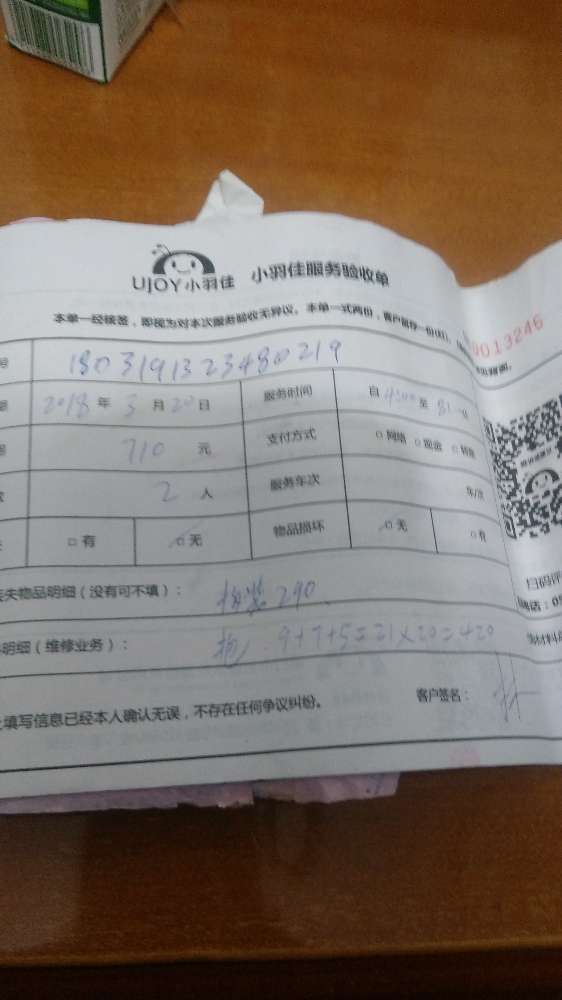 UJOY小羽佳 小羽佳服务验收单
本单一经核签，即视为对本次服务验收无异议。本单一式两份，客户留存一份
0013246
号 1803191323480219
期 2018年3月20日 服务时间 自 至
710元 支付方式 网络 现金 转账
2人 服务年次 年/次
有 无 物品损坏 无 有
失物品明细（没有可不填）： 290
明细（维修业务）： 9+7+5=21×20=420
填写信息已经本人确认无误，不存在任何争议纠纷。 客户签名：
扫码评